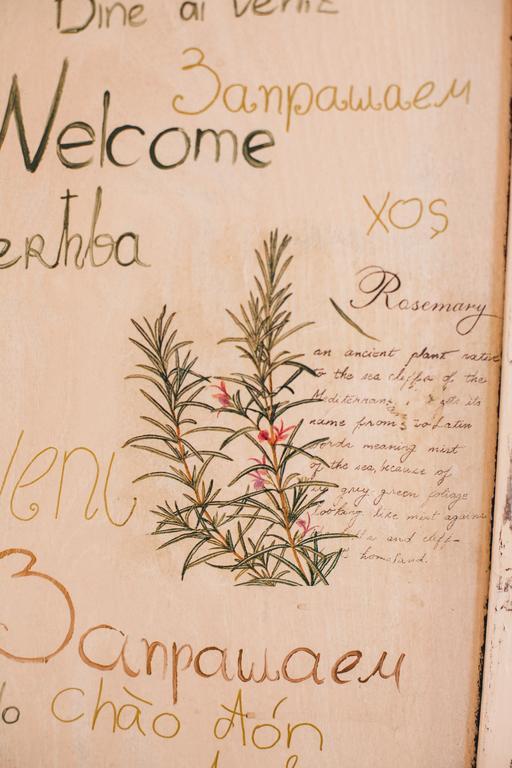 Dine ai veniz
Запрашаем
Welcome
xoş
Rosemary
an ancient plant native
to the sea cliffs of the
its
name from Latin
words meaning mist
of the sea, because of
grey green foliage
looking like mist against
and cliff-
homeland.
Запрашаем
chào đón